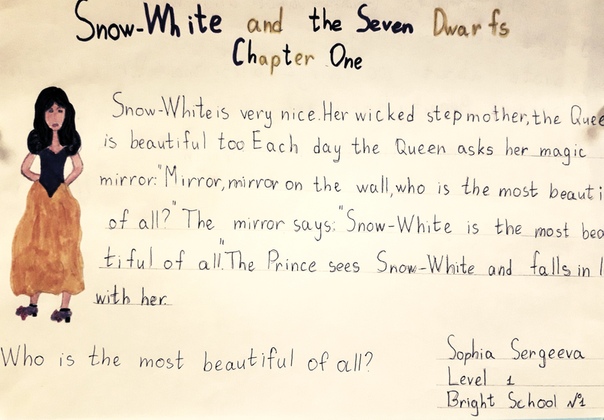 Snow-White and the Seven Dwarfs
Chapter One
Snow-White is very nice. Her wicked stepmother, the Quee
is beautiful too Each day the Queen asks her magic
mirror: "Mirror, mirror on the wall, who is the most beauti
of all?" The mirror says: "Snow-White is the most bea
tiful of all". The Prince sees Snow-White and falls in l
with her.
Who is the most beautiful of all?
Sophia Sergeeva
Level 1
Bright School №1